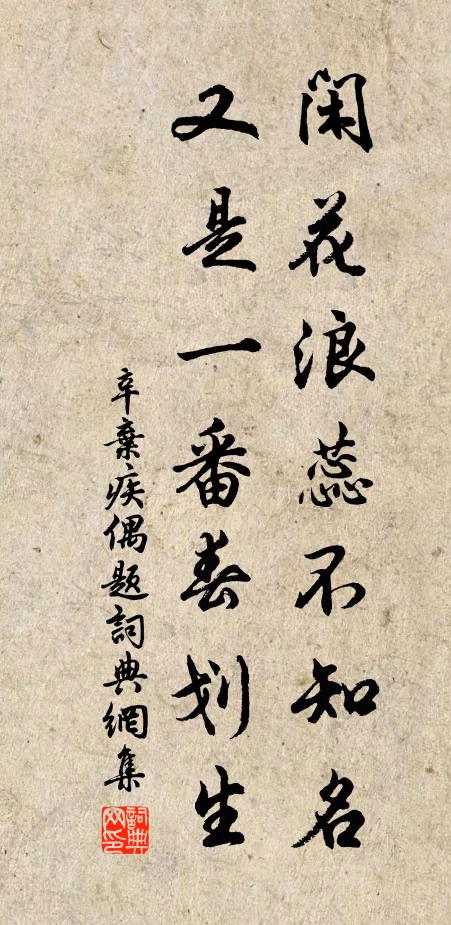 閑花浪蕊不知名
又是一番春划生
辛棄疾偶題詞典網集
詞典網印